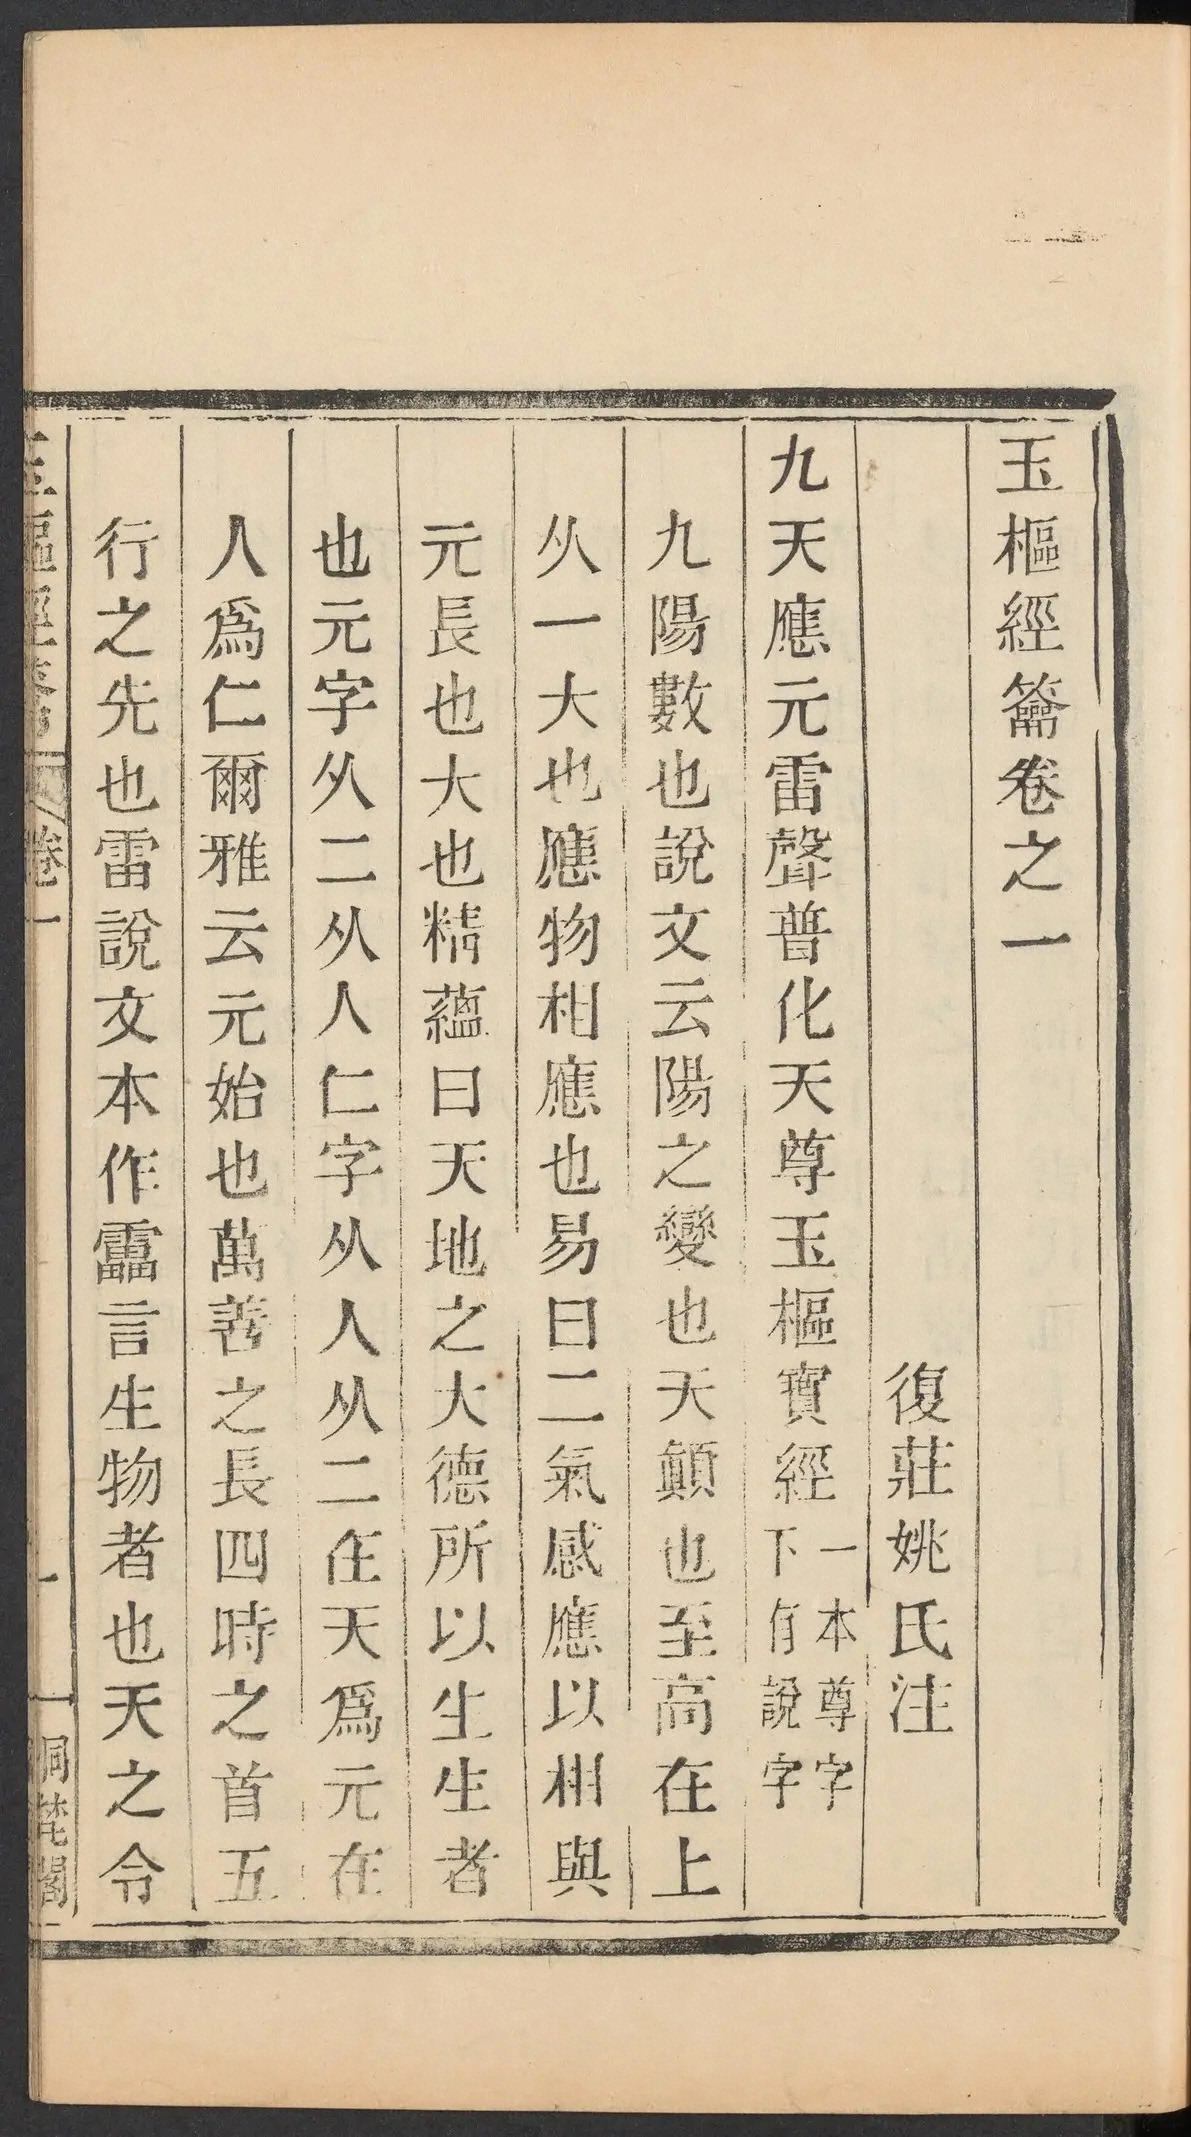 玉樞經籥卷之一
復莊姚氏注
九天應元雷聲普化天尊玉樞寶經一本尊字下有說字
九陽數也說文云陽之變也天顛也至高在上
从一大也應物相應也易曰二氣感應以相與
元長也大也精蘊曰天地之大德所以生生者
也元字从二从人仁字从人从二在天爲元在
人爲仁爾雅云元始也萬善之長四時之首五
行之先也雷說文本作靁言生物者也天之令
玉樞經籥 卷一 一 洞梵閣